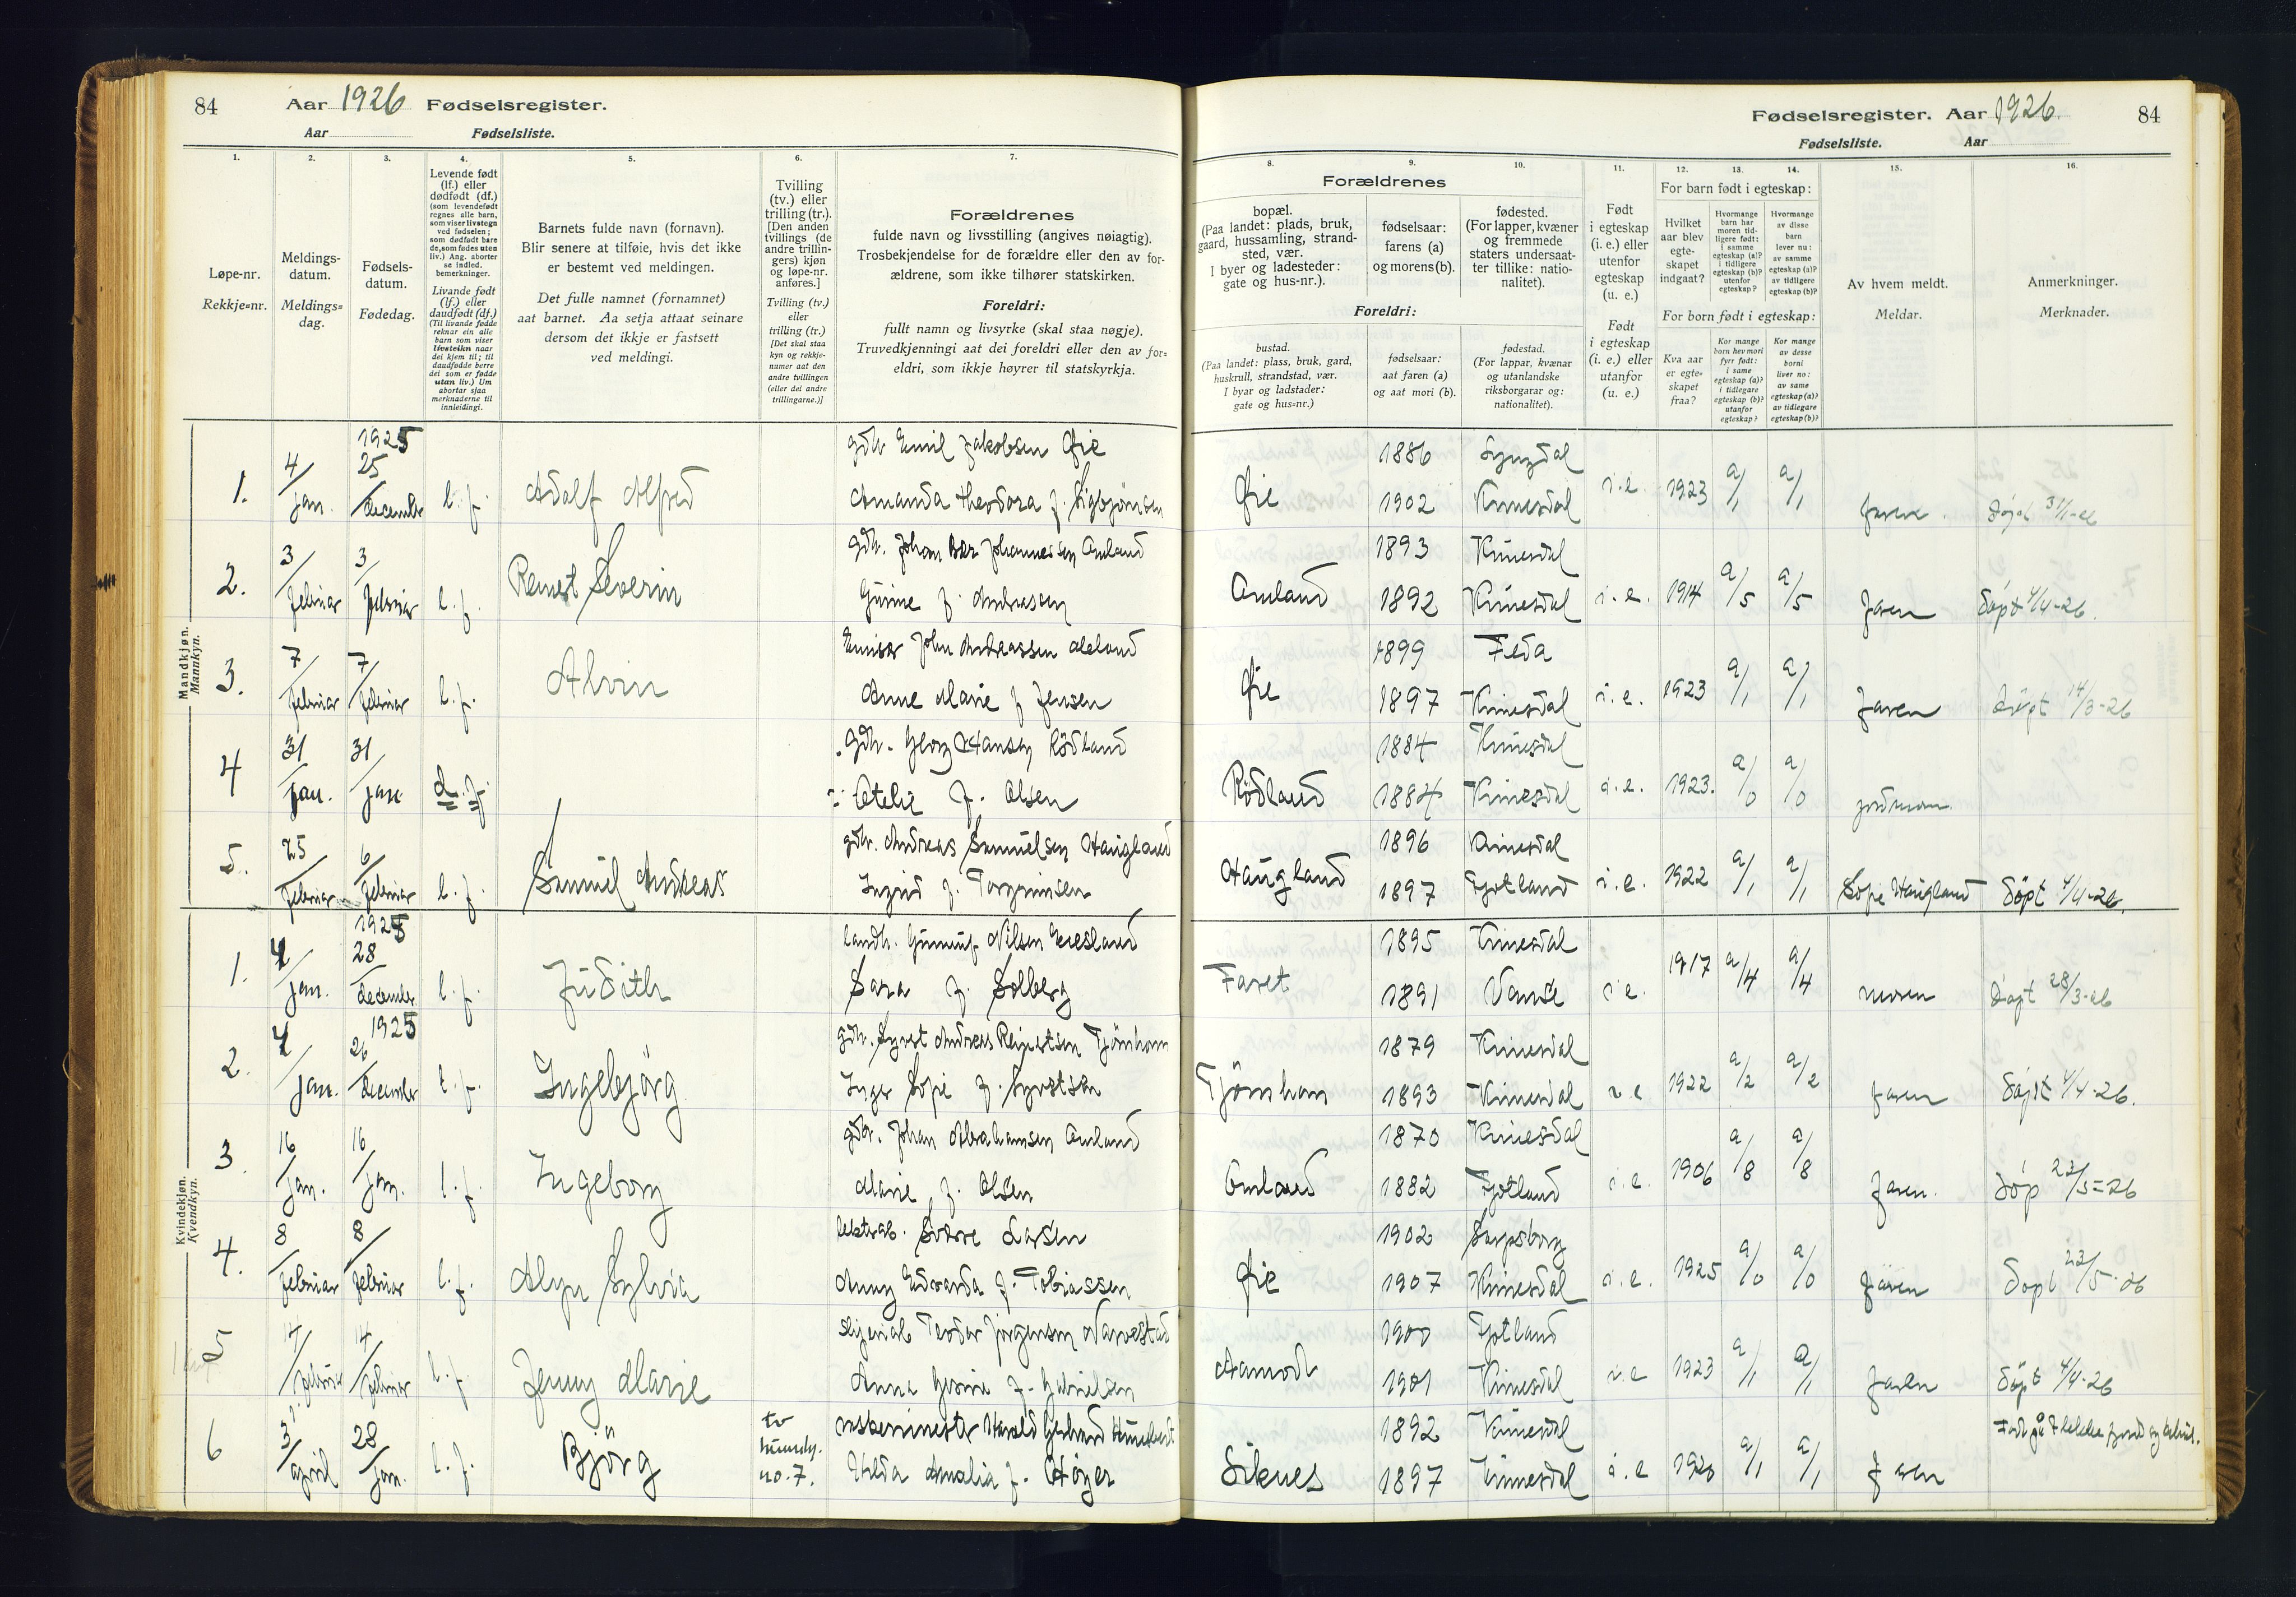 84 Aar 1926 Fødselsregister.
Aar Fødselsliste.
1. 2. 3. 4. 5. 6. 7.
Løpe-nr.
Rekkje=nr.
Meldings-
datum.
Meldings=
dag.
Fødsels-
datum.
Fødedag.
Levende født
(lf.) eller
dødfødt (df.)
(som levendefødt
regnes alle barn,
som viser livstegn
ved fødselen;
som dødfødt bare
de, som fødes uten
liv.) Ang. aborter
se indled.
bemerkninger.
Livande født
(lf.) eller
daudfødt (df.)
(Til livande fødde
reknar ein alle
barn som viser
livsteikn naar
dei kjem til; til
daudfødde berre
dei som er fødde
utan liv.) Um
abortar sjaa
merknaderne til
innleidingi.
Barnets fulde navn (fornavn).
Blir senere at tilføie, hvis det ikke
er bestemt ved meldingen.
Det fulle namnet (fornamnet)
aat barnet. Aa setja attaat seinare
dersom det ikkje er fastsett
ved meldingi.
Tvilling
(tv.) eller
trilling (tr.).
[Den anden
tvillings (de
andre trillin-
gers) kjøn
og løpe-nr.
anføres.]
Tvilling (tv.)
eller
trilling (tr.)
[Det skal staa
kyn og rekkje-
numer aat den
andre tvillingen
(eller dei andre
trillingarne.)]
Forældrenes
fulde navn og livsstilling (angives nøiagtig).
Trosbekjendelse for de forældre eller den av for-
ældrene, som ikke tilhører statskirken.
Foreldri:
fullt namn og livsyrke (skal staa nøgje).
Truvedkjenningi aat dei foreldri eller den av for=
eldri, som ikkje høyrer til statskyrkja.
Mandkjøn.
Mannkyn.
1. 4/jan. 1925 25/december l.f. Adolf Alfred gdbr Emil Jakobsen Øie
Amanda Theodora f. Sigbjörnsen
2. 3/februar 3/februar l.f. Severin gdbr. Johan Johannessen Omland
Gurine f. Andreasen
3. 7/februar 7/februar l.f. Alvin John Andreassen
Anne Marie f Jensen
4 31/jan. 31/jan d.f. gdbr. Georg Hansen Rödland
f. Olsen
5. 25/februar 6/februar l.f. Samuel Andreas gdbr. Andreas Samuelsen Haugland
Ingrid f. Torgrimsen
Kvindekjøn.
Kvendkyn.
1. 4/jan. 1925 28/december l.f. Judith Nilsen
Sara f. Solberg
2. 4/jan. 1925 26/december l.f. Ingebjörg gdbr. Syvert Andreas Reiertsen Tjömhom
Inger Sofie f. Syvertsen
3. 16/jan. 16/jan. l.f. Ingeborg gdbr. Johan Abrahamsen Omland
Marie f. Olsen
4. 8/februar 8/februar l.f. Sylvia Sverre Larsen
Anny Edvarda f. Tobiassen
5 14/februar 14/februar l.f. Jenny Marie Teodor Jörgensen
Anna f. Gabrielsen
6 3/april 28/jan. l.f. Björg tv
no. 7. Harald
Hilda Amalia f.
Fødselsregister. Aar 1926. 84
Fødselsliste. Aar
8. 9. 10. 11. 12. 13. 14. 15. 16.
Forældrenes
bopæl.
(Paa landet: plads, bruk,
gaard, hussamling, strand-
sted, vær.
I byer og ladesteder:
gate og hus-nr.).
fødselsaar:
farens (a)
og morens (b).
fødested.
(For lapper, kvæner
og fremmede
staters undersaat-
ter tillike: natio-
nalitet).
Foreldri:
bustad.
(Paa landet: plass, bruk, gard,
huskrull, strandstad, vær.
I byar og ladstader:
gate og hus=nr.)
fødselsaar:
aat faren (a)
og aat mori (b).
fødestad.
(For lappar, kvænar
og utanlandske
riksborgarar og:
nationalitet).
Født
i egteskap
(i. e.) eller
utenfor
egteskap
(u. e.)
Født
i egteskap
(i. e.) eller
utanfor
(u. e.)
For barn født i egteskap:
Hvilket
aar blev
egte-
skapet
indgaat?
Hvormange
barn har
moren tid-
ligere født:
i samme
egteskap (a)?
i tidligere
egteskap (b)?
utenfor
egteskap?
Hvormange
av disse
barn
lever nu:
av samme
egteskap (a)?
av tidligere
egteskap (b)?
For born født i egteskap:
Kva aar
er egte-
skapet
fraa?
Kor mange
born hev mori
fyrr født:
i same
egteskap (a)?
i tidlegare
egteskap (b)?
utanfor
egteskap?
Kor mange
av desse
borni
liver no:
av same
egteskap (a)?
av tidlegare
egteskap (b)?
Av hvem meldt.
Meldar.
Anmerkninger.
Merknader.
Øie 1886 Lyngdal i.e. 1923 a/1 a/1
1902 Kvinesdal
Omland 1893 Kvinesdal i.e. 1914 a/5 a/5 faren döpt 4/4-26.
1892 Kvinesdal
Øie 1899 Feda i.e. 1923 a/1 a/1 faren döpt 14/3-26
1897 Kvinesdal
Rödland 1884 Kvinesdal i.e. 1923. a/0 a/0 jordmoren
1884 Kvinesdal
Haugland 1896 Kvinesdal i.e. 1922 a/1 a/1 Sofie Haugland döpt 4/4-26.
1897 Fjotland
Faret 1895 Kvinesdal i.e. 1917 a/4 a/4 moren döpt 28/3-26
1891 Vanse
Tjömhom 1879 Kvinesdal i.e 1922 a/2 a/2 faren döpt 4/4-26.
1893 Kvinesdal
Omland 1870 Kvinesdal i.e. 1906 a/8 a/8 faren. döp 22/5=26
1882 Fjotland
Øie 1902 Sarpsborg i.e. 1925 a/0 a/0 faren döpt 23/5-26
1907 Kvinesdal
Aamodt 1900 Fjotland i.e 1923 a/1 a/1 faren döpt 4/4-26
1901 Kvinesdal
1892 Kvinesdal i.e 1920 a/1 a/1 faren Födt på Flekkefjord sykehus.
1897 Kvinesdal